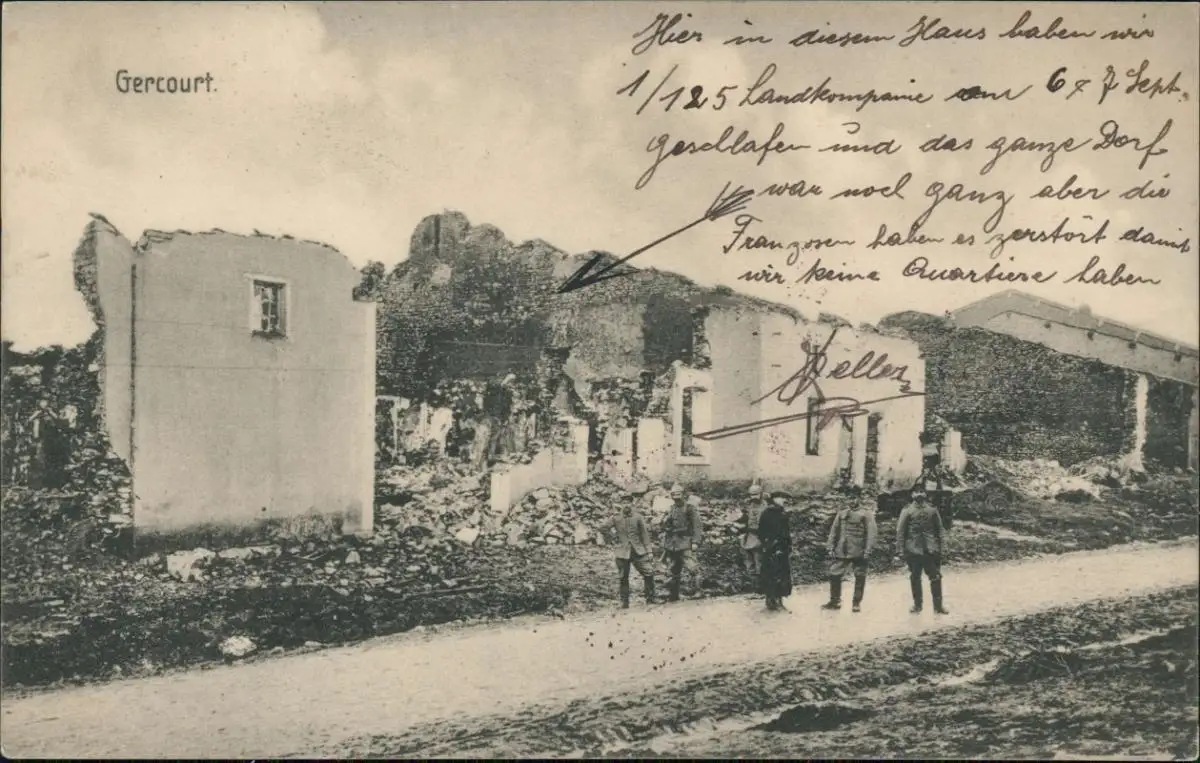 Gercourt.
Hier in diesem Haus haben wir
1/125 Landkompanie am 6 & 7 Sept.
geschlafen und das ganze Dorf
war noch ganz aber die
Franzosen haben es zerstört damit
wir keine Quartiere haben